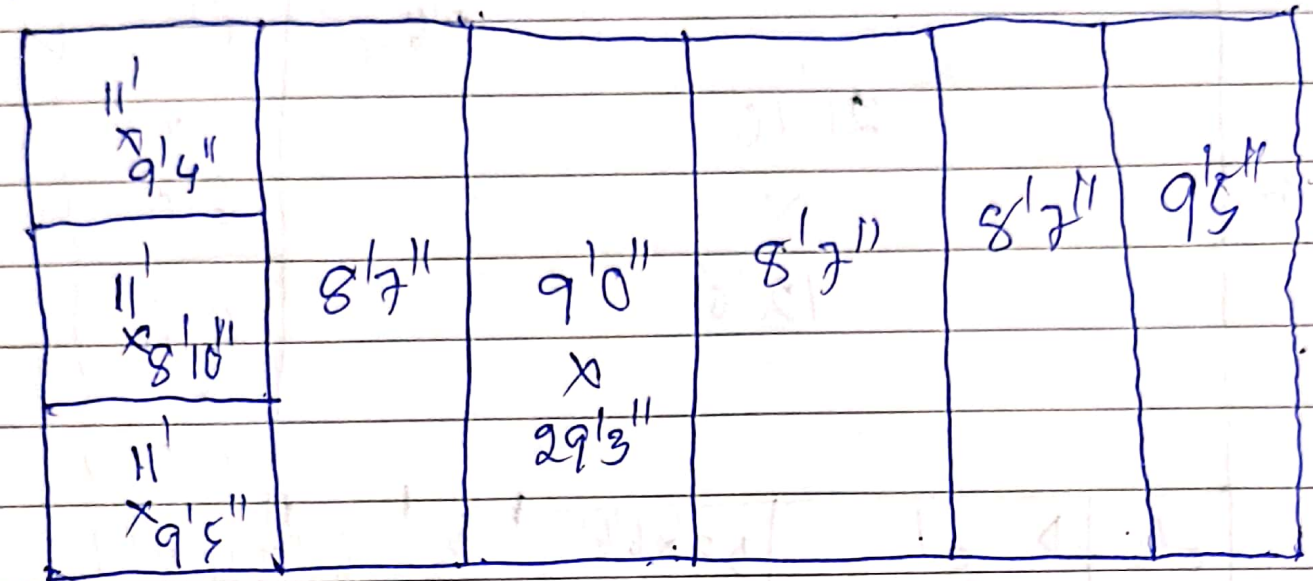 11'
x
9'4"
11'
x
8'10"
11'
x
9'5"
8'7"
9'0"
x
29'3"
8'7"
8'7"
9'5"